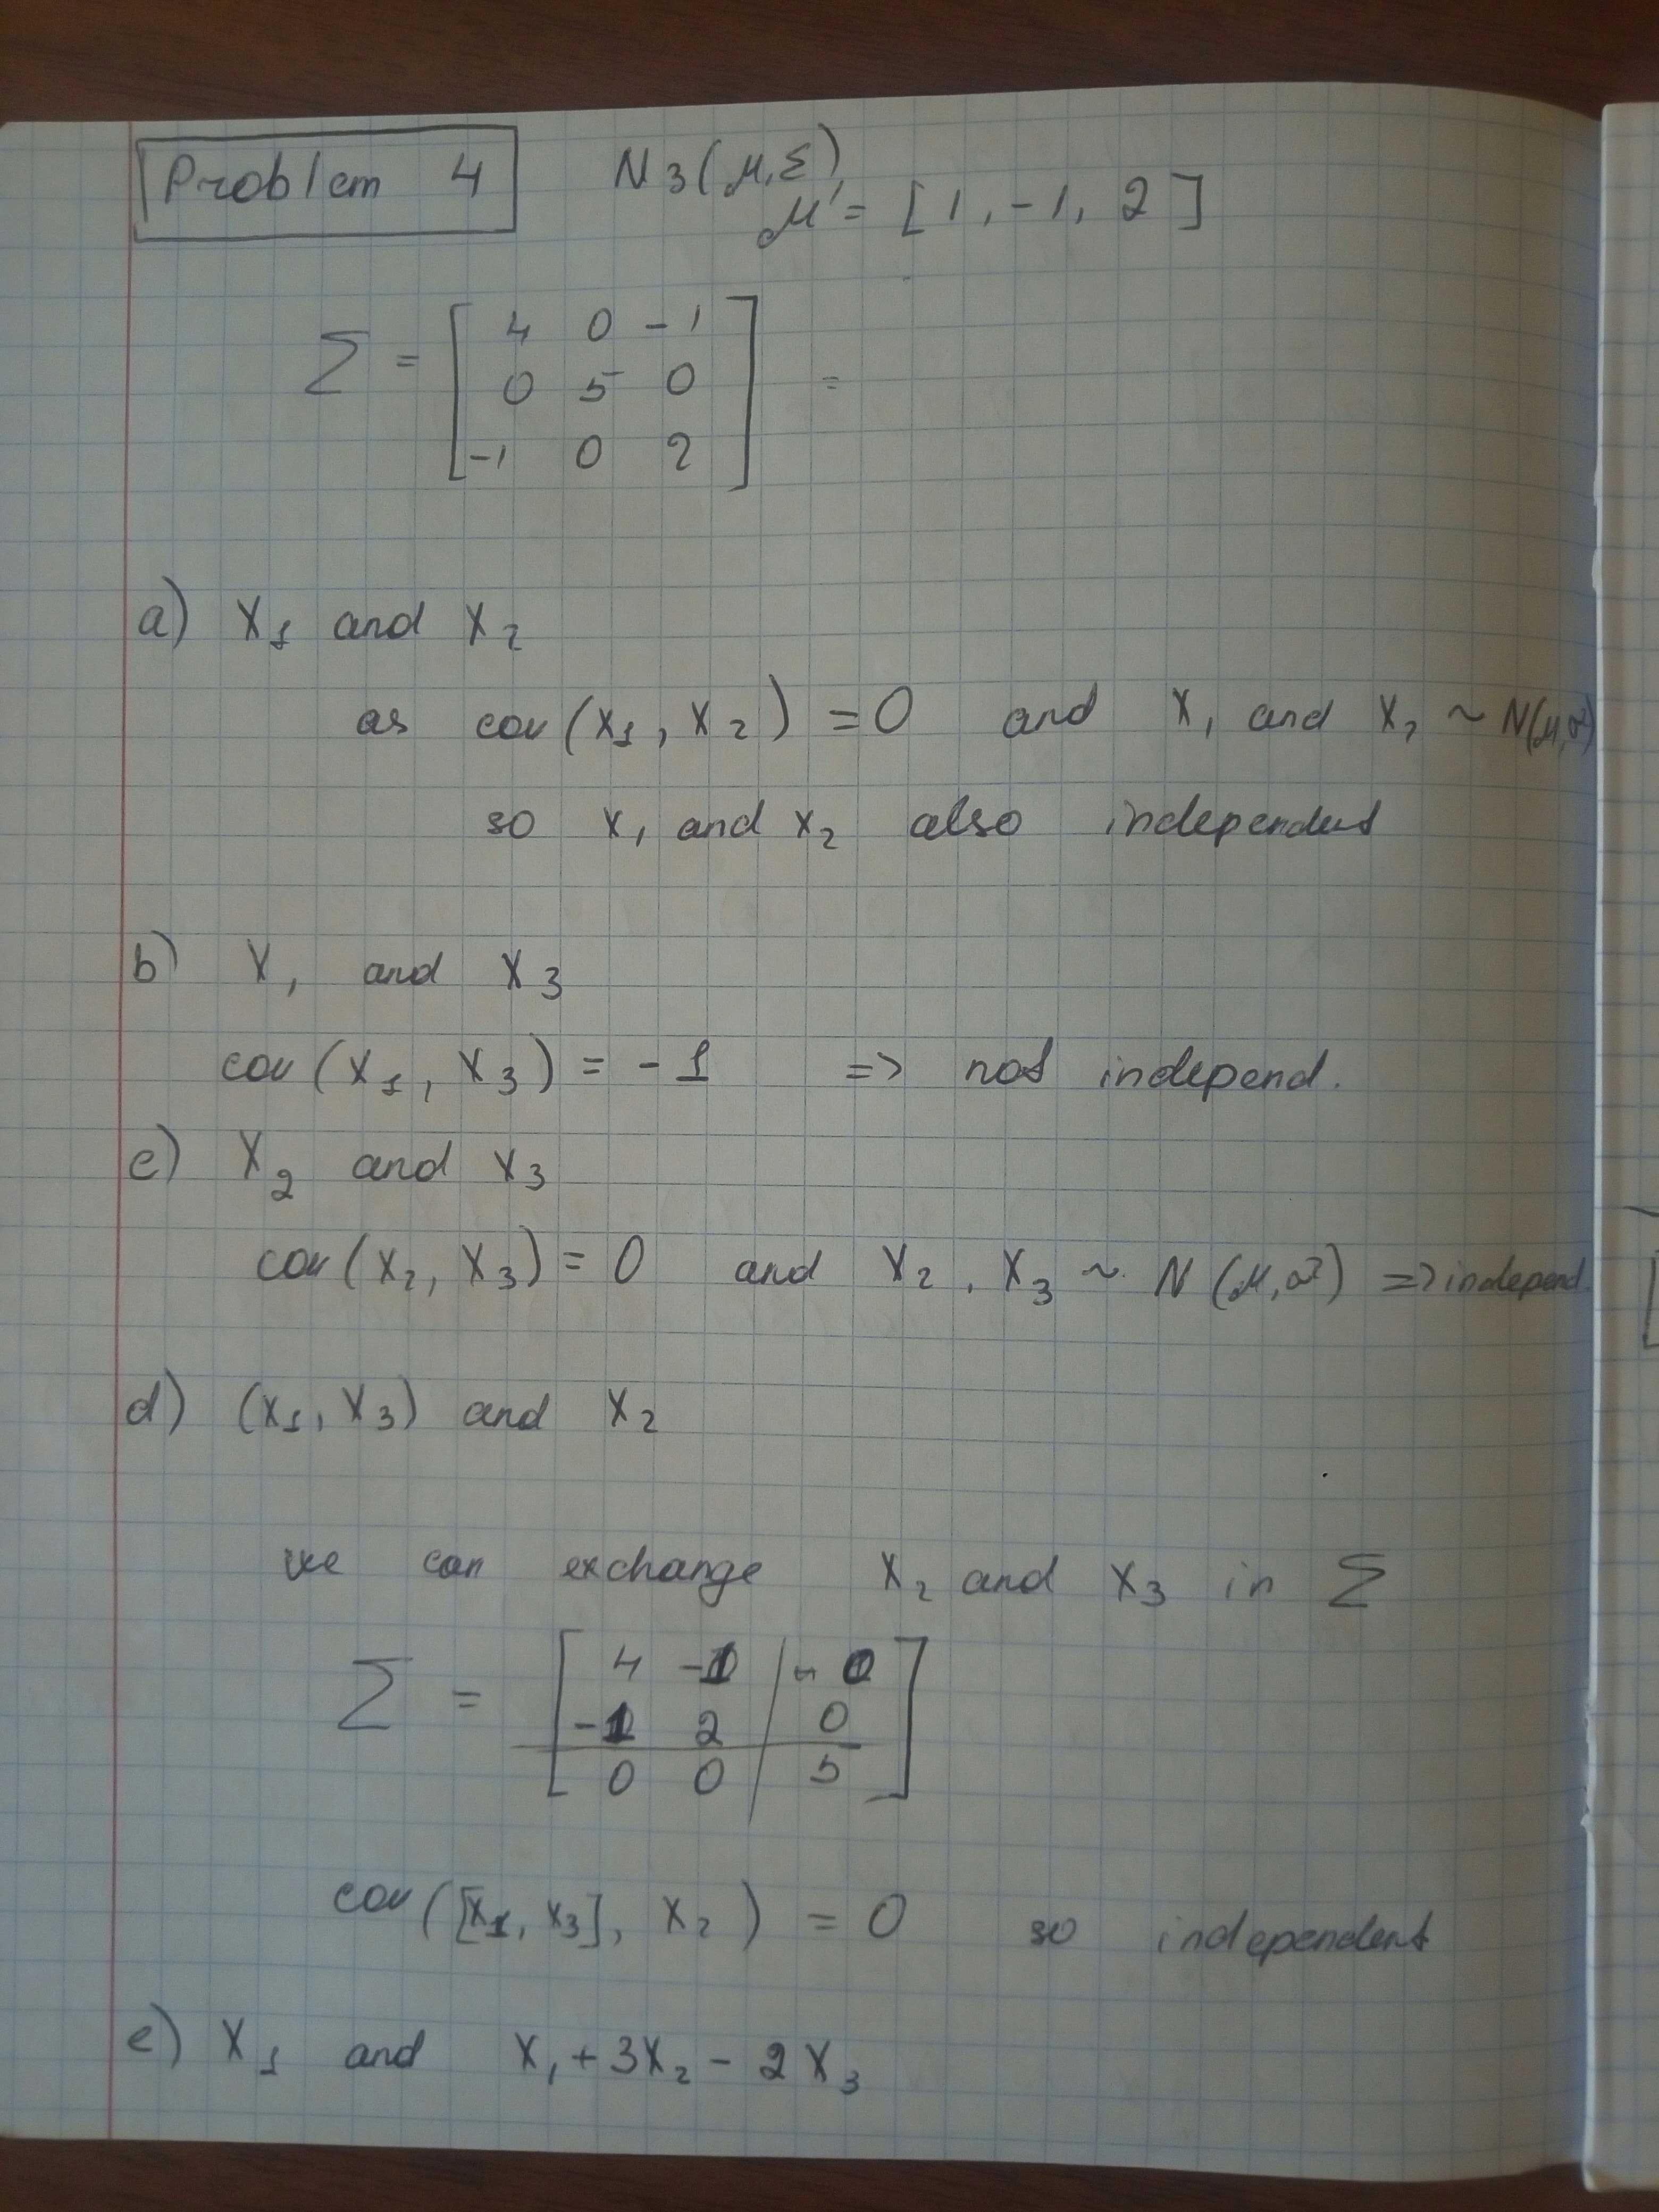 Problem 4 N3(μ,Σ)
μ' = [1, -1, 2]
Σ = [4 0 -1
0 5 0 =
-1 0 2]
a) X1 and X2
as cov(X1, X2) = 0 and X1 and X2 ~ N(μ,σ²)
so X1 and X2 also independent
b) X1 and X3
cov(X1, X3) = -1 => not independ.
c) X2 and X3
cov(X2, X3) = 0 and X2, X3 ~ N(μ,σ²) => independ.
d) (X1, X3) and X2
we can exchange X2 and X3 in Σ
Σ = [4 -1 | 0
-1 2 | 0
0 0 | 5]
cov([X1, X3], X2) = 0 so independent
e) X1 and X1 + 3X2 - 2X3